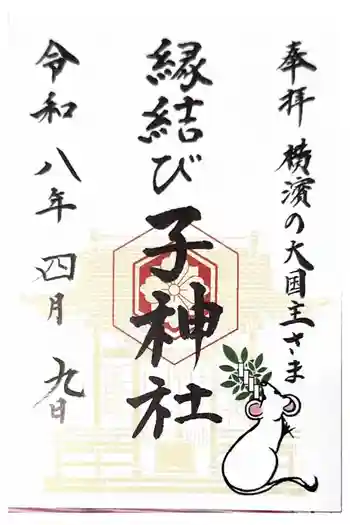 奉拝 横濱の大国主さま
縁結び
子神社
令和八年四月九日